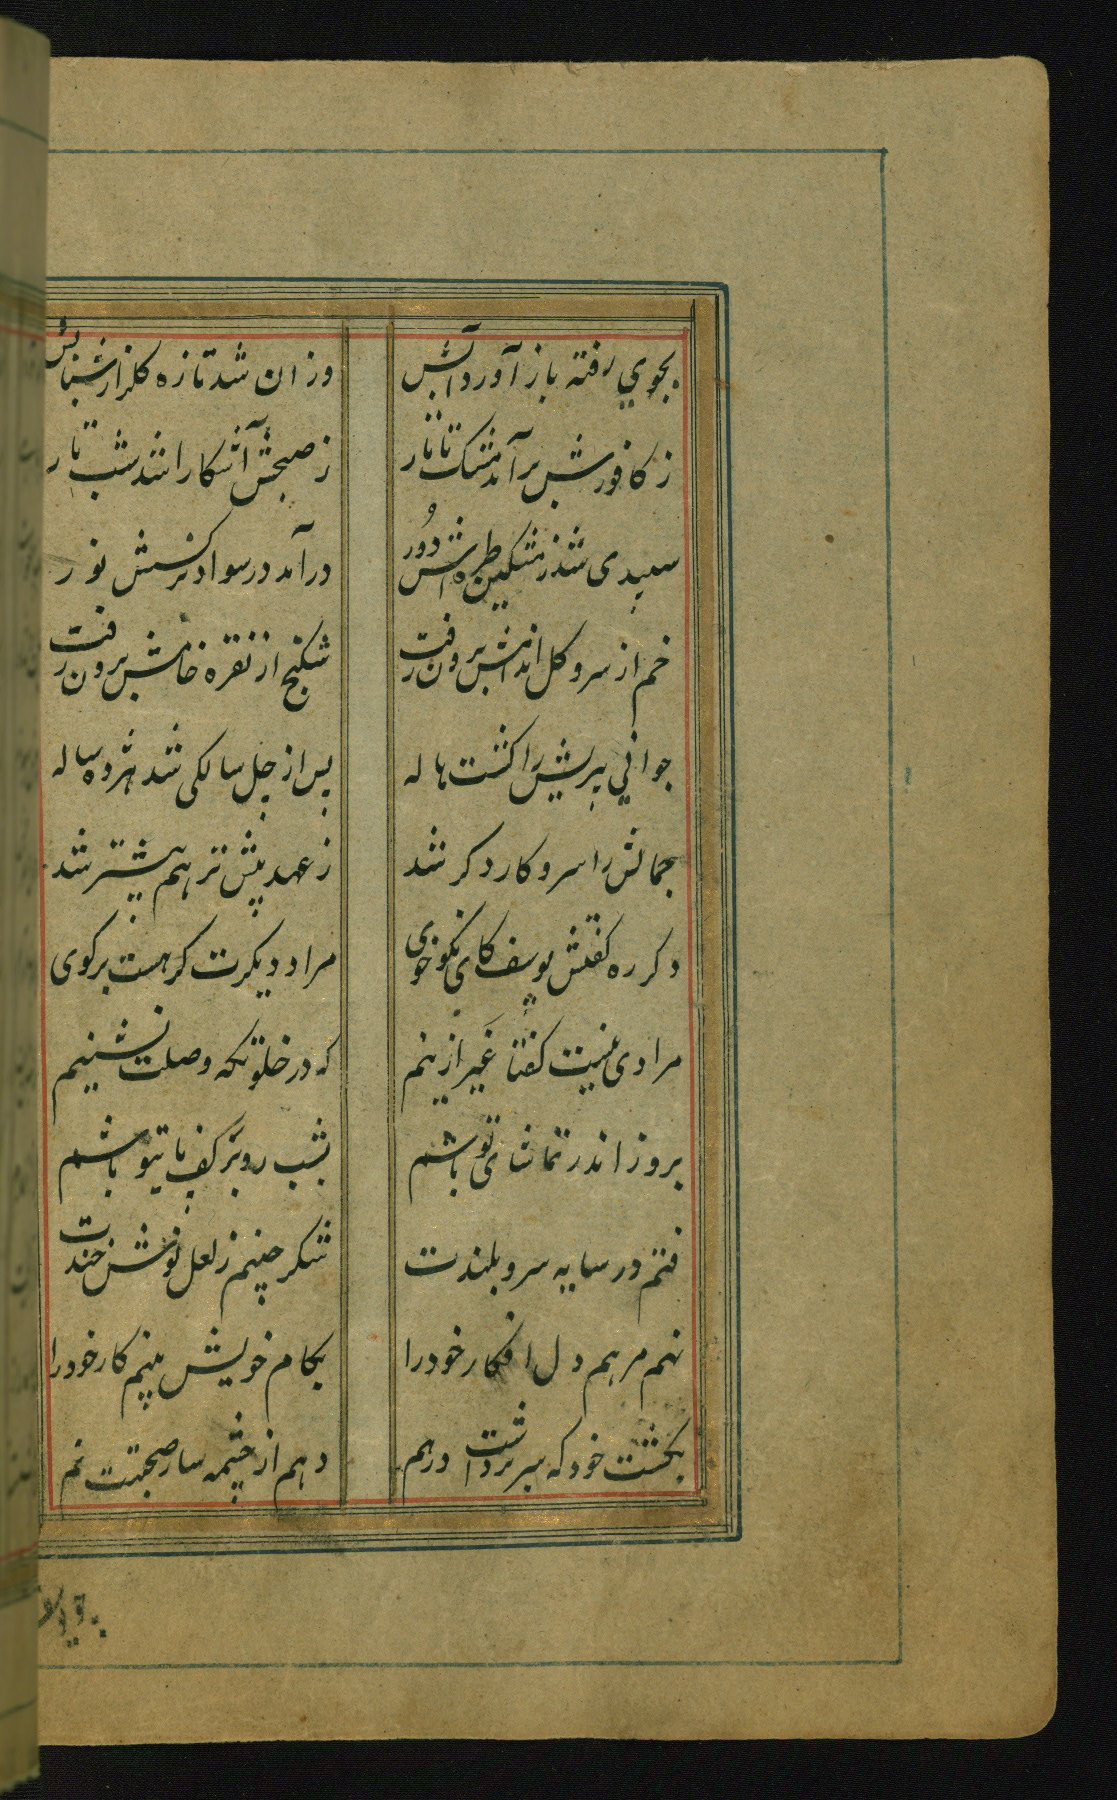 بجوی رفته باز آورد آبش وزان شد تازه کلزار شبابش
ز کافورش برآمد مشک تاتار ز صبحش آشکارا شد شب تار
سپیدی شد ز مشکین طره اش دور درآمد در سواد نرکسش نور
خم از سرو کل اندامش برون رفت شکنج از نقره خامش برون رفت
جوانی پیریش را کشت هاله پس از چل سالکی شد هژده ساله
جمالش را سر و کار دکر شد ز عهد پیش تر هم بیشتر شد
دکر ره کفتش یوسف کای نکو خوی مراد دیکرت کر هست برکوی
مرادی نیست کفتا غیر ازینم که در خلوتکه وصلت نشینم
بروز اندر تماشای تو باشم بشب رو بر کف پایتو باشم
فتم در سایه سرو بلندت شکر چینم ز لعل نوش خندت
نهم مرهم دل افکار خود را بکام خویش بینم کار خود را
بکشت خود که سر برداشت درهم دهم از چشمه سار صحبتت نم